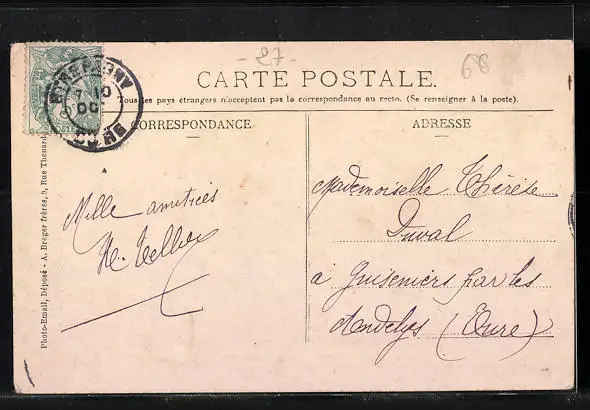 - 27 -
68
CARTE POSTALE.
Tous les pays étrangers n'acceptent pas la correspondance au recto. (Se renseigner à la poste).
CORRESPONDANCE
ADRESSE
Mille amitiés
Mademoiselle Thérèse
Duval
à Guiseniers par les
Andelys (Eure)
Photo-Email, Déposé - A. Breger frères, 9, Rue Thénard
POSTES
10
EURE